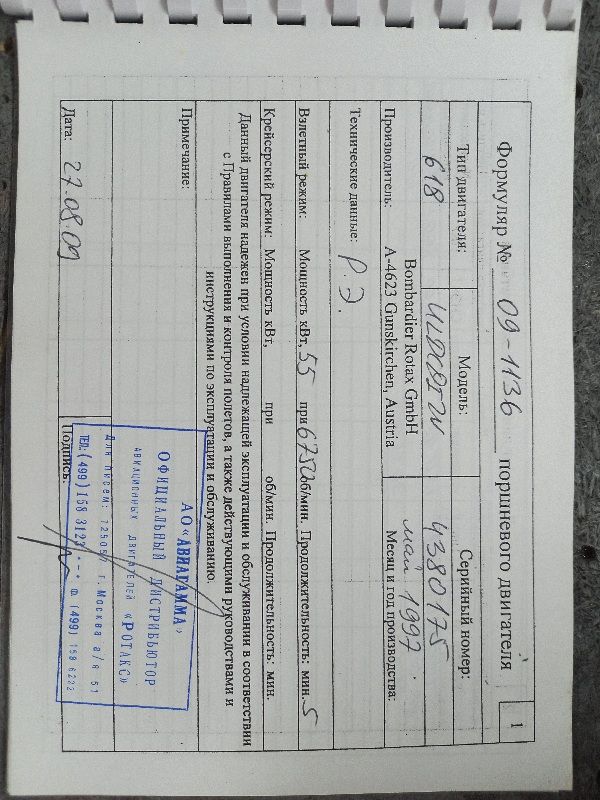 Формуляр № 09-1136 поршневого двигателя 1
Тип двигателя: Модель: Серийный номер:
618 ULDCDI2V 4380175
Производитель: Bombardier Rotax GmbH Месяц и год производства:
A-4623 Gunskirchen, Austria май 1997.
Технические данные: Р.Э.
Взлетный режим: Мощность кВт, 55 при 6750 об/мин. Продолжительность: мин. 5
Крейсерский режим: Мощность кВт, при об/мин. Продолжительность: мин.
Данный двигателя надежен при условии надлежащей эксплуатации и обслуживании в соответствии
с Правилами выполнения и контроля полетов, а также действующими руководствами и
инструкциями по эксплуатации и обслуживанию.
Примечание:
АО «АВИАГАММА»
ОФИЦИАЛЬНЫЙ ДИСТРИБЬЮТОР
АВИАЦИОННЫХ ДВИГАТЕЛЕЙ «РОТАКС»
Для писем: 125057 г. Москва а/я 51
ТЕЛ: (499) 158 3123 Ф. (499) 158 6222
Дата: 27.08.09 Подпись: